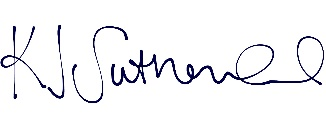 K J Sutherland